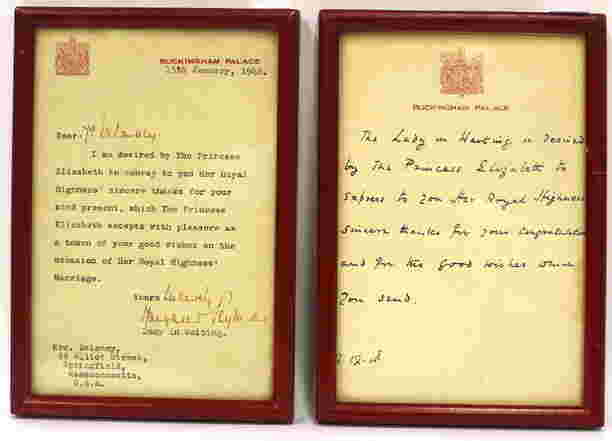 BUCKINGHAM PALACE
15th January, 1948.
Dear
I am desired by The Princess
Elizabeth to convey to you Her Royal
Highness' sincere thanks for your
kind present, which The Princess
Elizabeth accepts with pleasure as
a token of your good wishes on the
occasion of Her Royal Highness'
Marriage.
Yours sincerely
Lady in Waiting.
Mrs. Delaney,
Elliot Street,
Springfield,
Massachusetts,
U.S.A.
BUCKINGHAM PALACE
The Lady in Waiting is Desired
by The Princess Elizabeth to
express to you Her Royal Highness'
sincere thanks for your congratulations
and for the good wishes which
you send.